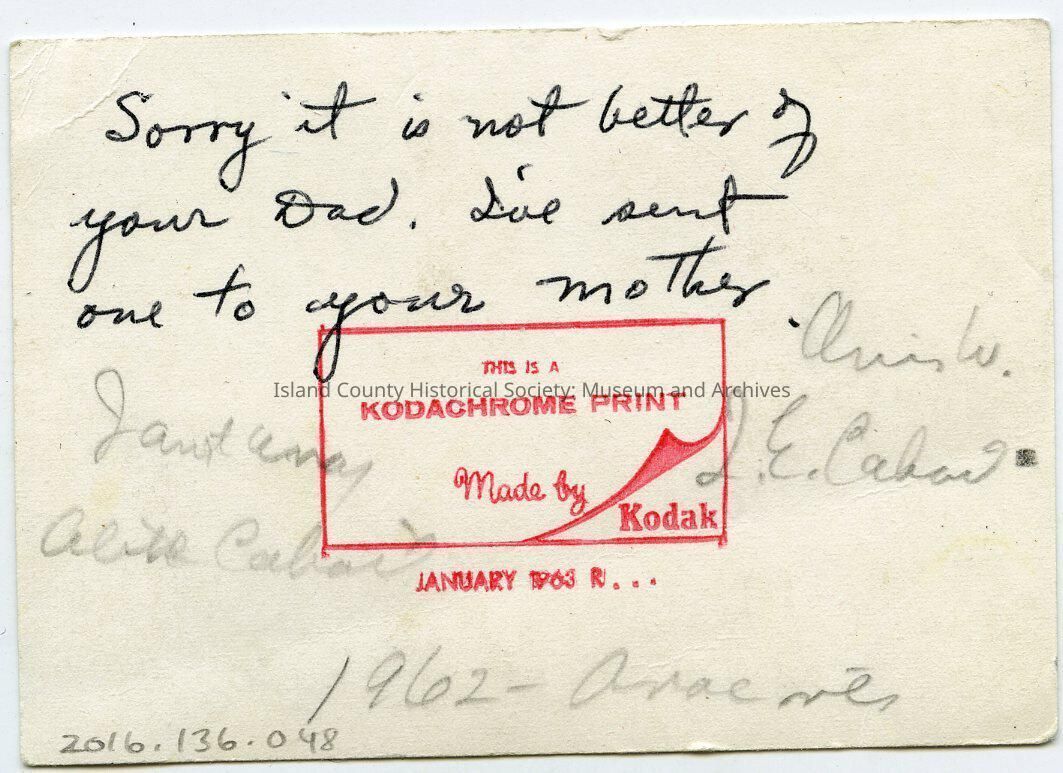 Sorry it is not better of
your Dad. I've sent
one to your mother.
THIS IS A
Island County Historical Society: Museum and Archives
KODACHROME PRINT
Made by
Kodak
JANUARY 1963 R...
1962 -
2016.136.048